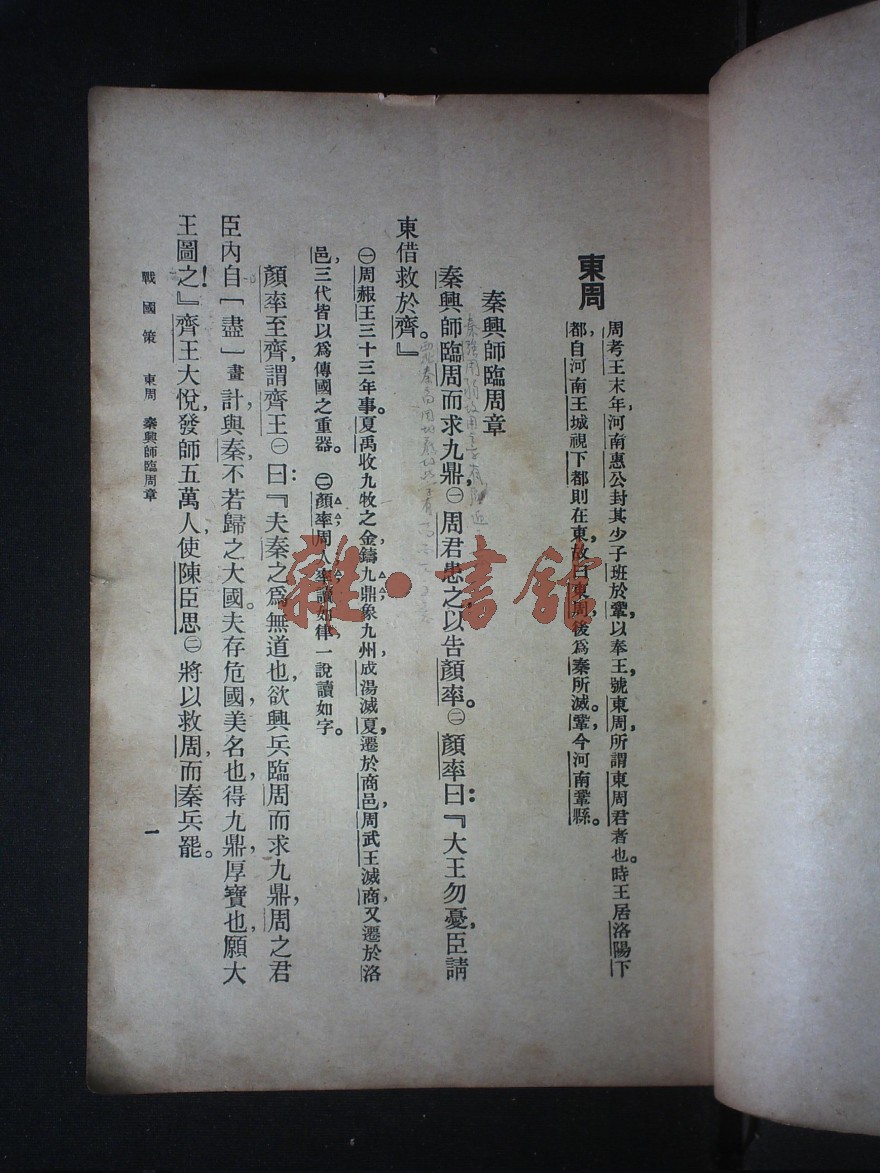 東周
周考王末年，河南惠公封其少子班於鞏，以奉王，號東周，所謂東周君者也。時王居洛陽下
都，自河南王城視下都則在東，故曰東周，後爲秦所滅。鞏，今河南鞏縣。
秦興師臨周章
秦興師臨周而求九鼎，㊀周君患之，以告顏率。㊁顏率曰：『大王勿憂，臣請
東借救於齊。』
㊀周赧王三十三年事。夏禹收九牧之金，鑄九鼎，象九州。成湯滅夏，遷於商邑，周武王滅商，又遷於洛
邑，三代皆以爲傳國之重器。㊁顏率，周人，率讀如律，一說讀如字。
顏率至齊，謂齊王㊀曰：『夫秦之爲無道也，欲興兵臨周而求九鼎，周之君
臣內自［盡］畫計，與秦，不若歸之大國。夫存危國，美名也，得九鼎，厚寶也，願大
王圖之！』齊王大悅，發師五萬人，使陳臣思㊁將以救周，而秦兵罷。
戰國策　東周　秦興師臨周章　一
雜·書館